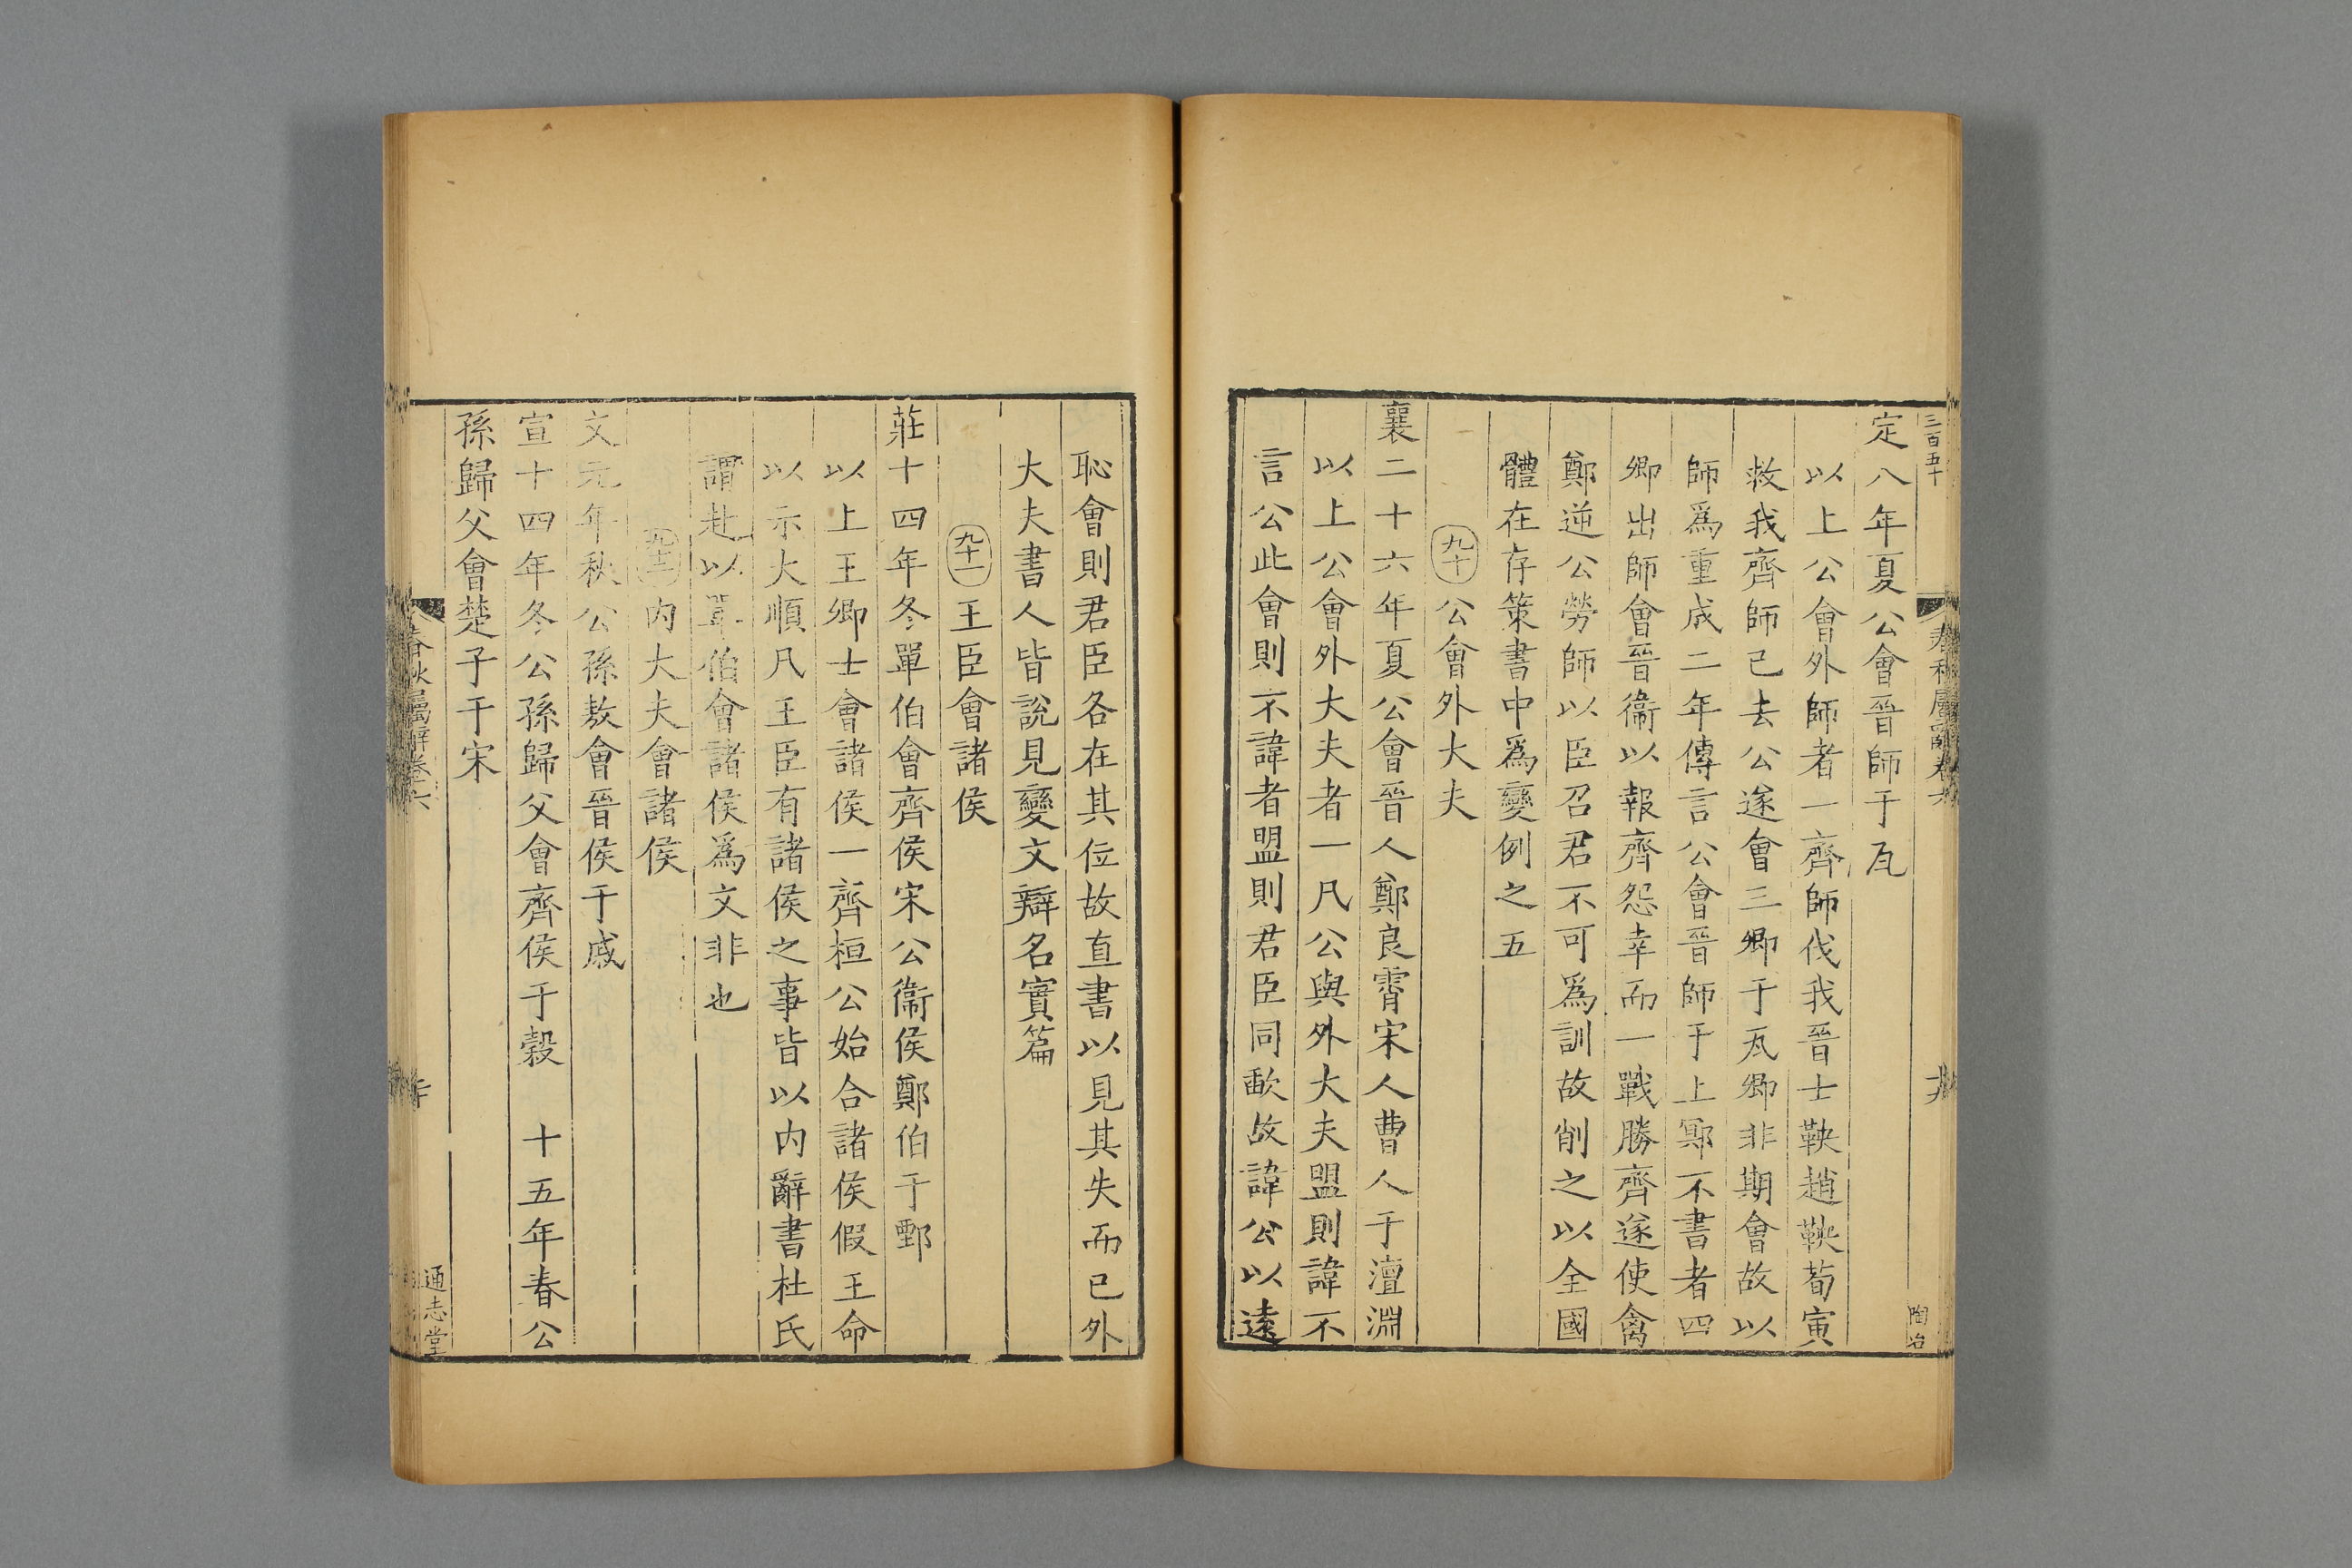 三百五十
春秋屬辭卷六
十九
陶冶
定八年夏公會晉師于瓦
以上公會外師者一齊師伐我晉士鞅趙鞅荀寅
救我齊師已去公遂會三卿于瓦卿非期會故以
師爲重成二年傳言公會晉師于上鄍不書者四
卿出師會晉衞以報齊怨幸而一戰勝齊遂使禽
鄭逆公勞師以臣召君不可爲訓故削之以全國
體在存策書中爲變例之五
九十 公會外大夫
襄二十六年夏公會晉人鄭良霄宋人曹人于澶淵
以上公會外大夫者一凡公與外大夫盟則諱不
言公此會則不諱者盟則君臣同歃故諱公以遠
恥會則君臣各在其位故直書以見其失而已外
大夫書人皆説見變文辯名實篇
九十一 王臣會諸侯
莊十四年冬單伯會齊侯宋公衞侯鄭伯于鄄
以上王卿士會諸侯一齊桓公始合諸侯假王命
以示大順凡王臣有諸侯之事皆以内辭書杜氏
謂赴以單伯會諸侯爲文非也
九十二 内大夫會諸侯
文元年秋公孫敖會晉侯于戚
宣十四年冬公孫歸父會齊侯于穀 十五年春公
孫歸父會楚子于宋
春秋屬辭卷六
二十
通志堂